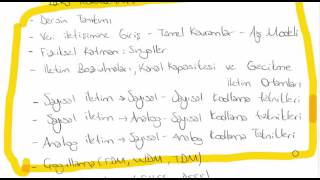 - Dersin Tanıtımı
- Veri iletişimine Giriş - Temel Kavramlar - Ağ Modeli
- Fiziksel Katman: Sinyaller
- İletim Bozulmaları, Kanal Kapasitesi ve Gecikme
İletim Ortamları
- Sayısal iletim → Sayısal - Sayısal Kodlama teknikleri
- Sayısal iletim → Analog - Sayısal Kodlama teknikleri
- Analog iletim → Sayısal - Analog Kodlama Teknikleri
- Çoğullama (FDM, WDM, TDM)